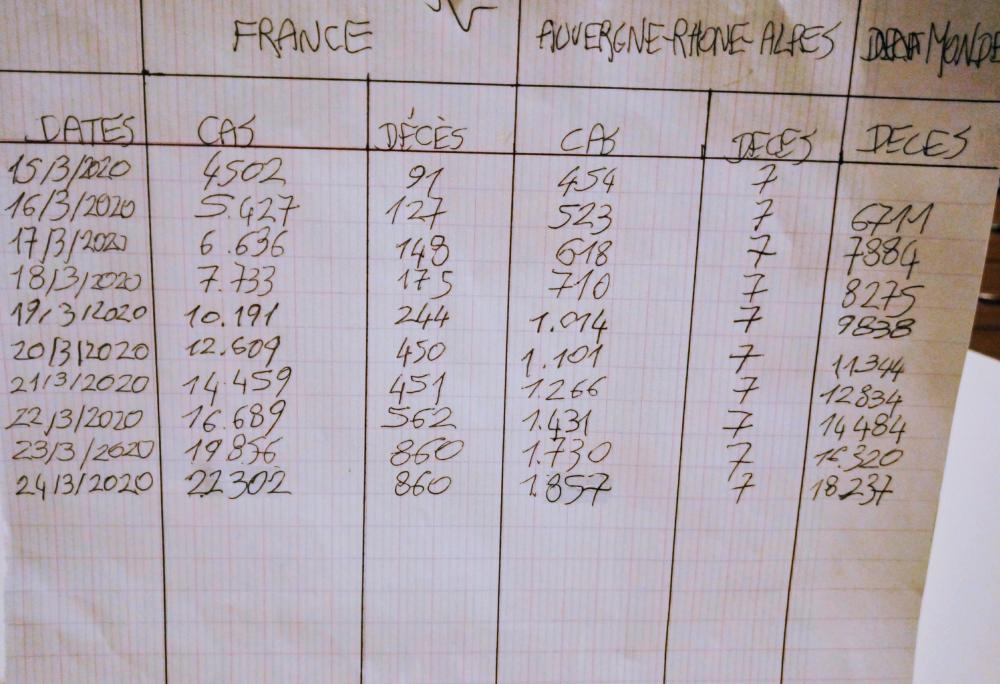 FRANCE AUVERGNE-RHONE-ALPES MONDE
DATES CAS DÉCÈS CAS DECES DECES
15/3/2020 4502 91 454 7
16/3/2020 5.427 127 523 7 6711
17/3/2020 6.636 148 618 7 7884
18/3/2020 7.733 175 710 7 8275
19/3/2020 10.191 244 1.014 7 9838
20/3/2020 12.609 450 1.101 7 11.344
21/3/2020 14.459 451 1.266 7 12834
22/3/2020 16.689 562 1.431 7 14484
23/3/2020 19856 860 1.730 7 16.320
24/3/2020 22302 860 1.857 7 18.237